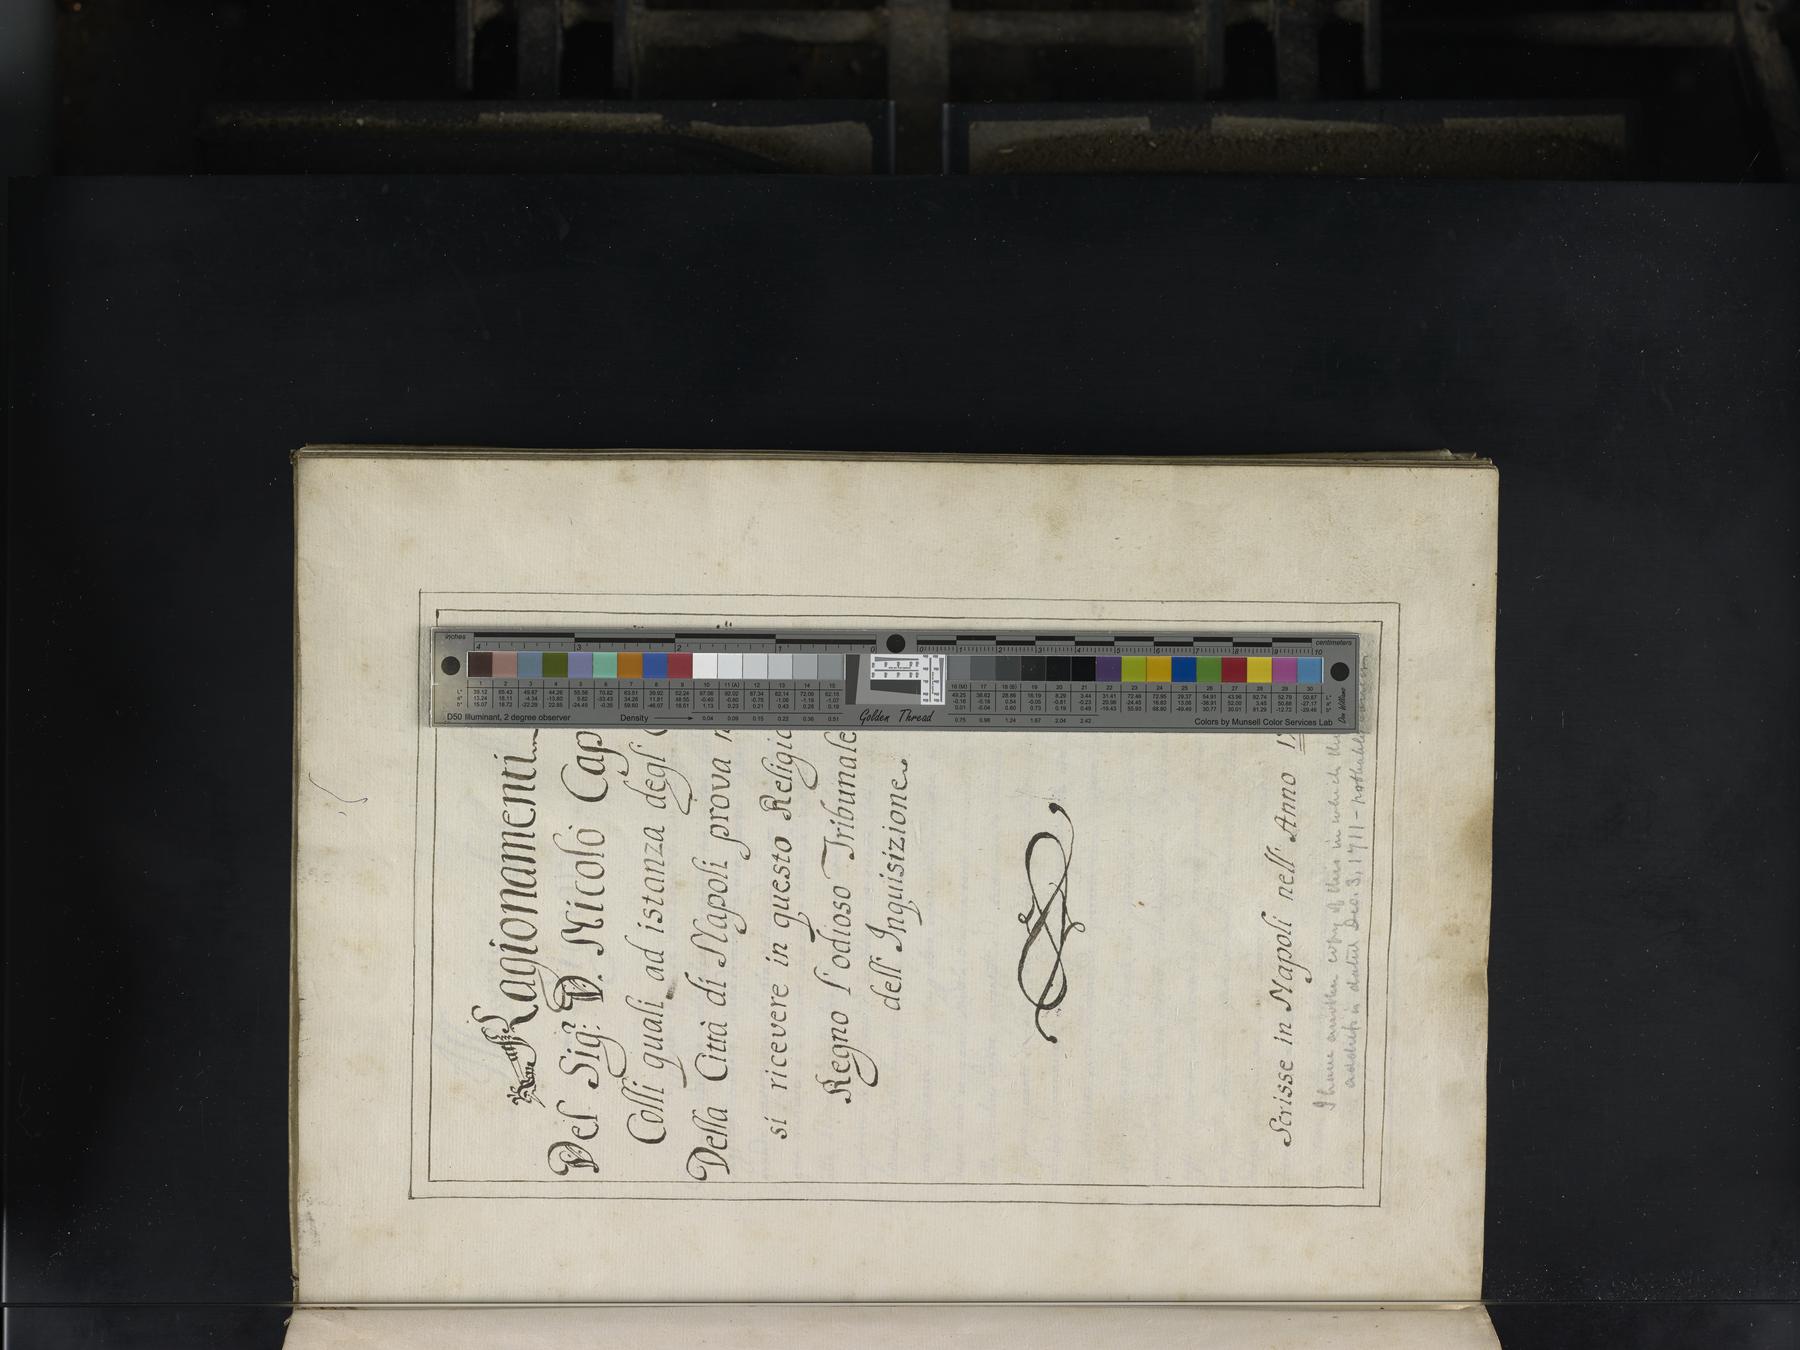 Ragionamenti
Del Sig.r D. Nicolò Cap
Colli quali ad istanza degl'
Della Città di Napoli prova
si ricevere in questo Religio
Regno l'odioso Tribunale
dell'Inquisizione
Scrisse in Napoli nell'Anno 17
I have another copy of this in which the
address is dated Dec. 3, 1711 - probably
inches
centimeters
4 3 2 1 0
0 1 2 3 4 5 6 7 8 9 10
1 2 3 4 5 6 7 8 9 10 11 (A) 12 13 14 15
16 (M) 17 18 (B) 19 20 21 22 23 24 25 26 27 28 29 30
D50 Illuminant, 2 degree observer
Density
0.04 0.09 0.15 0.22 0.36 0.51
Golden Thread
0.75 0.98 1.24 1.67 2.04 2.42
Colors by Munsell Color Services Lab